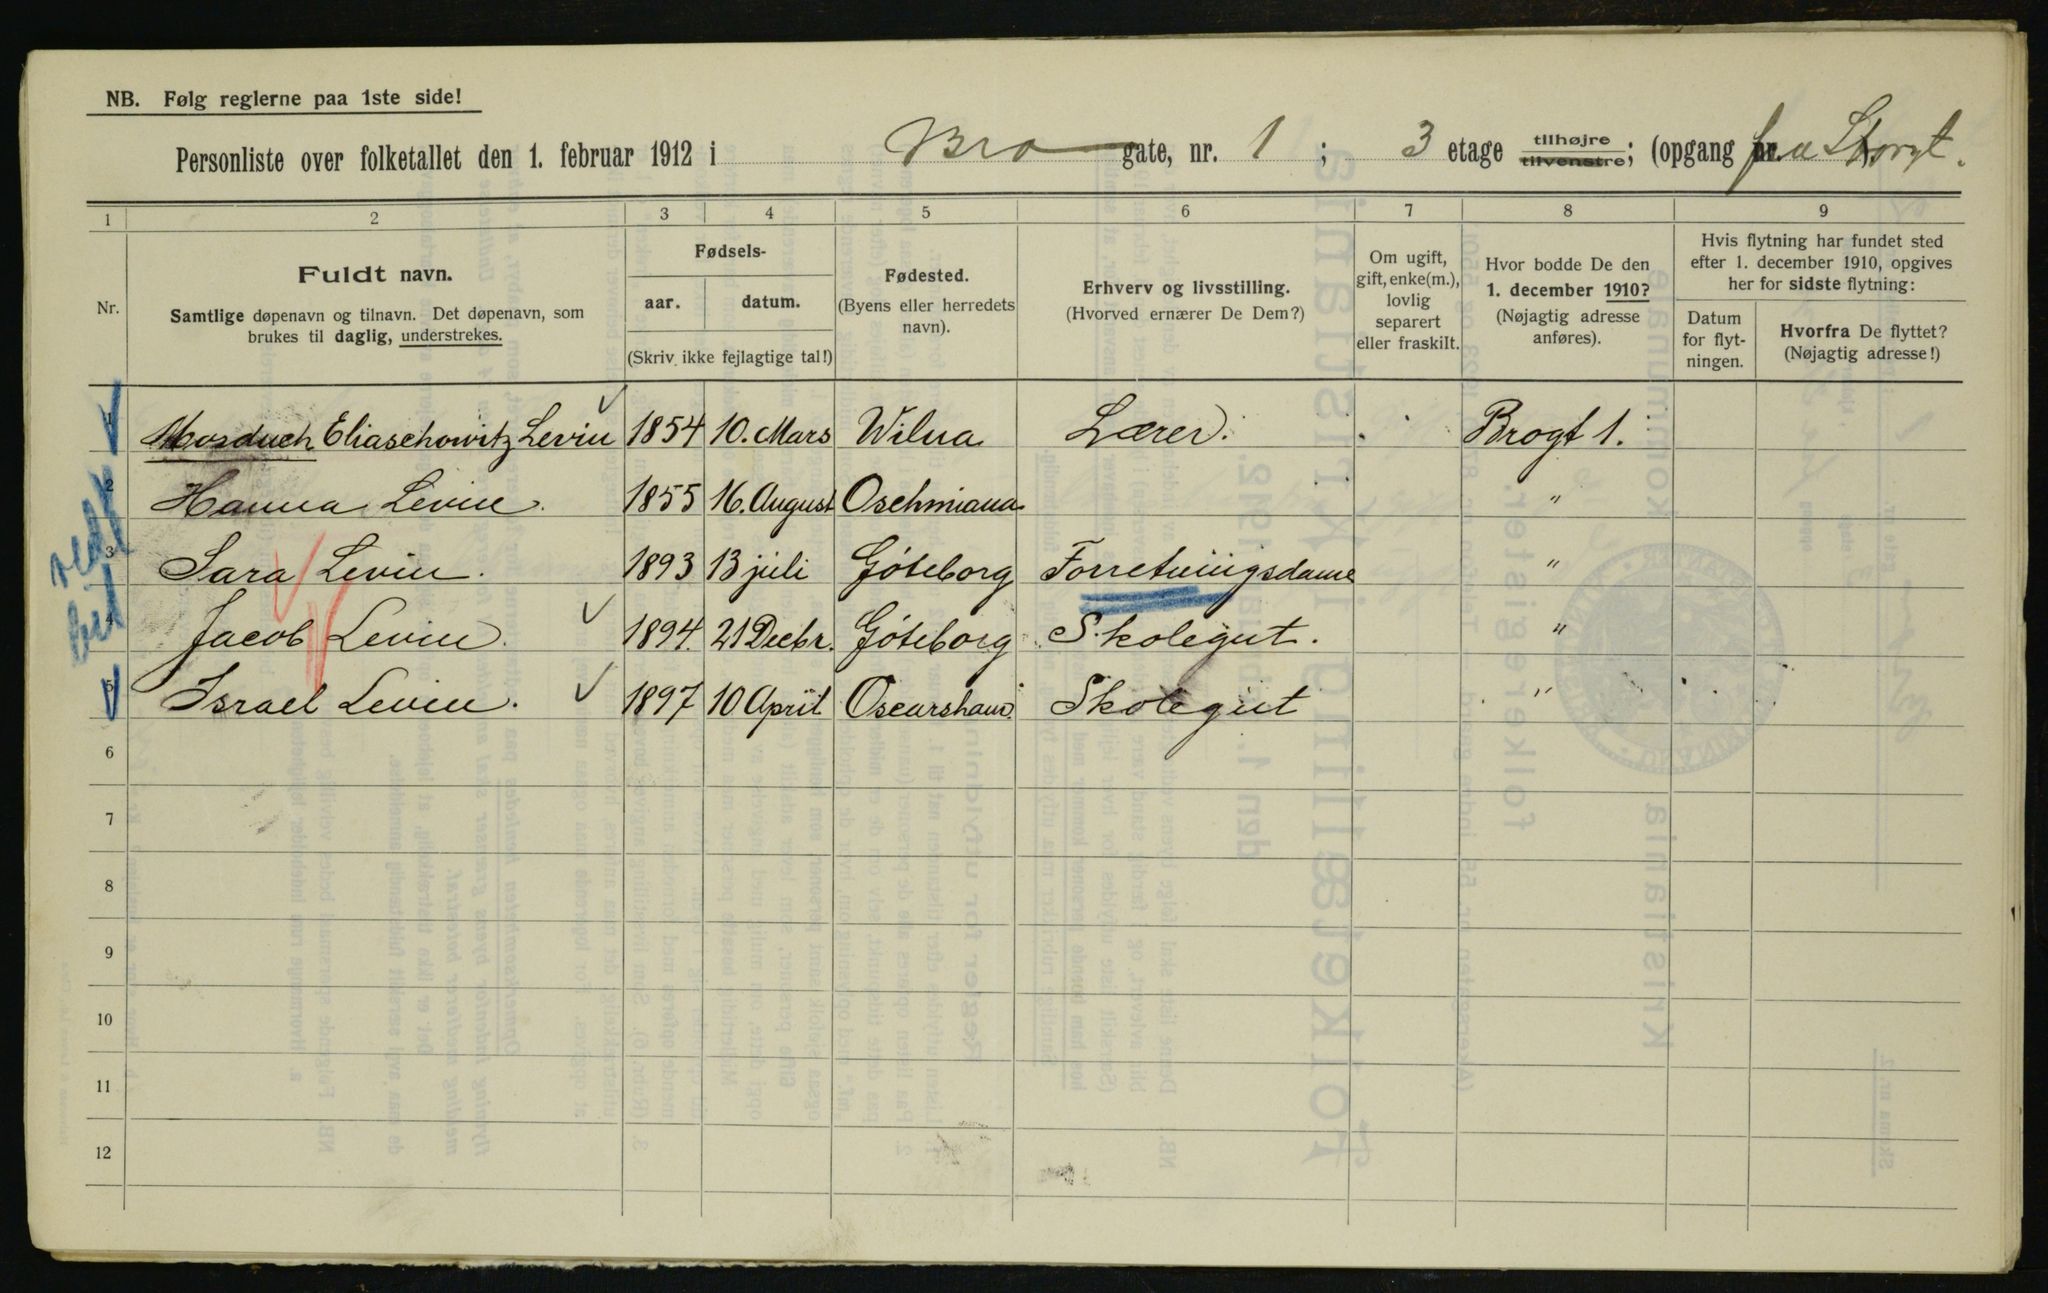 NB. Følg reglerne paa 1ste side!
Personliste over folketallet den 1. februar 1912 i Bro gate, nr. 1 ; 3 etage tilhøjre tilvenstre; (opgang nr. fra Storgt.
1 2 3 4 5 6 7 8 9
Nr.
Fuldt navn.
Samtlige døpenavn og tilnavn. Det døpenavn, som
brukes til daglig, understrekes.
Fødsels-
aar. datum.
(Skriv ikke fejlagtige tal!)
Fødested.
(Byens eller herredets
navn).
Erhverv og livsstilling.
(Hvorved ernærer De Dem?)
Om ugift,
gift, enke(m.),
lovlig
separert
eller fraskilt.
Hvor bodde De den
1. december 1910?
(Nøjagtig adresse
anføres).
Hvis flytning har fundet sted
efter 1. december 1910, opgives
her for sidste flytning:
Datum
for flyt-
ningen.
Hvorfra De flyttet?
(Nøjagtig adresse!)
1 Mosduch Eliaschowitz Levin 1854 10. Mars Wilna Lærer. Brogt 1.
2 Hanna Levin. 1855 16. August Oschmiana "
3 Sara Levin. 1893 13 juli Göteborg Forretningsdame "
4 Jacob Levin. 1894. 21 Decbr. Göteborg Skolegut. "
5 Israel Levin. 1897 10 April Oscarshamn. Skolegut "
6
7
8
9
10
11
12